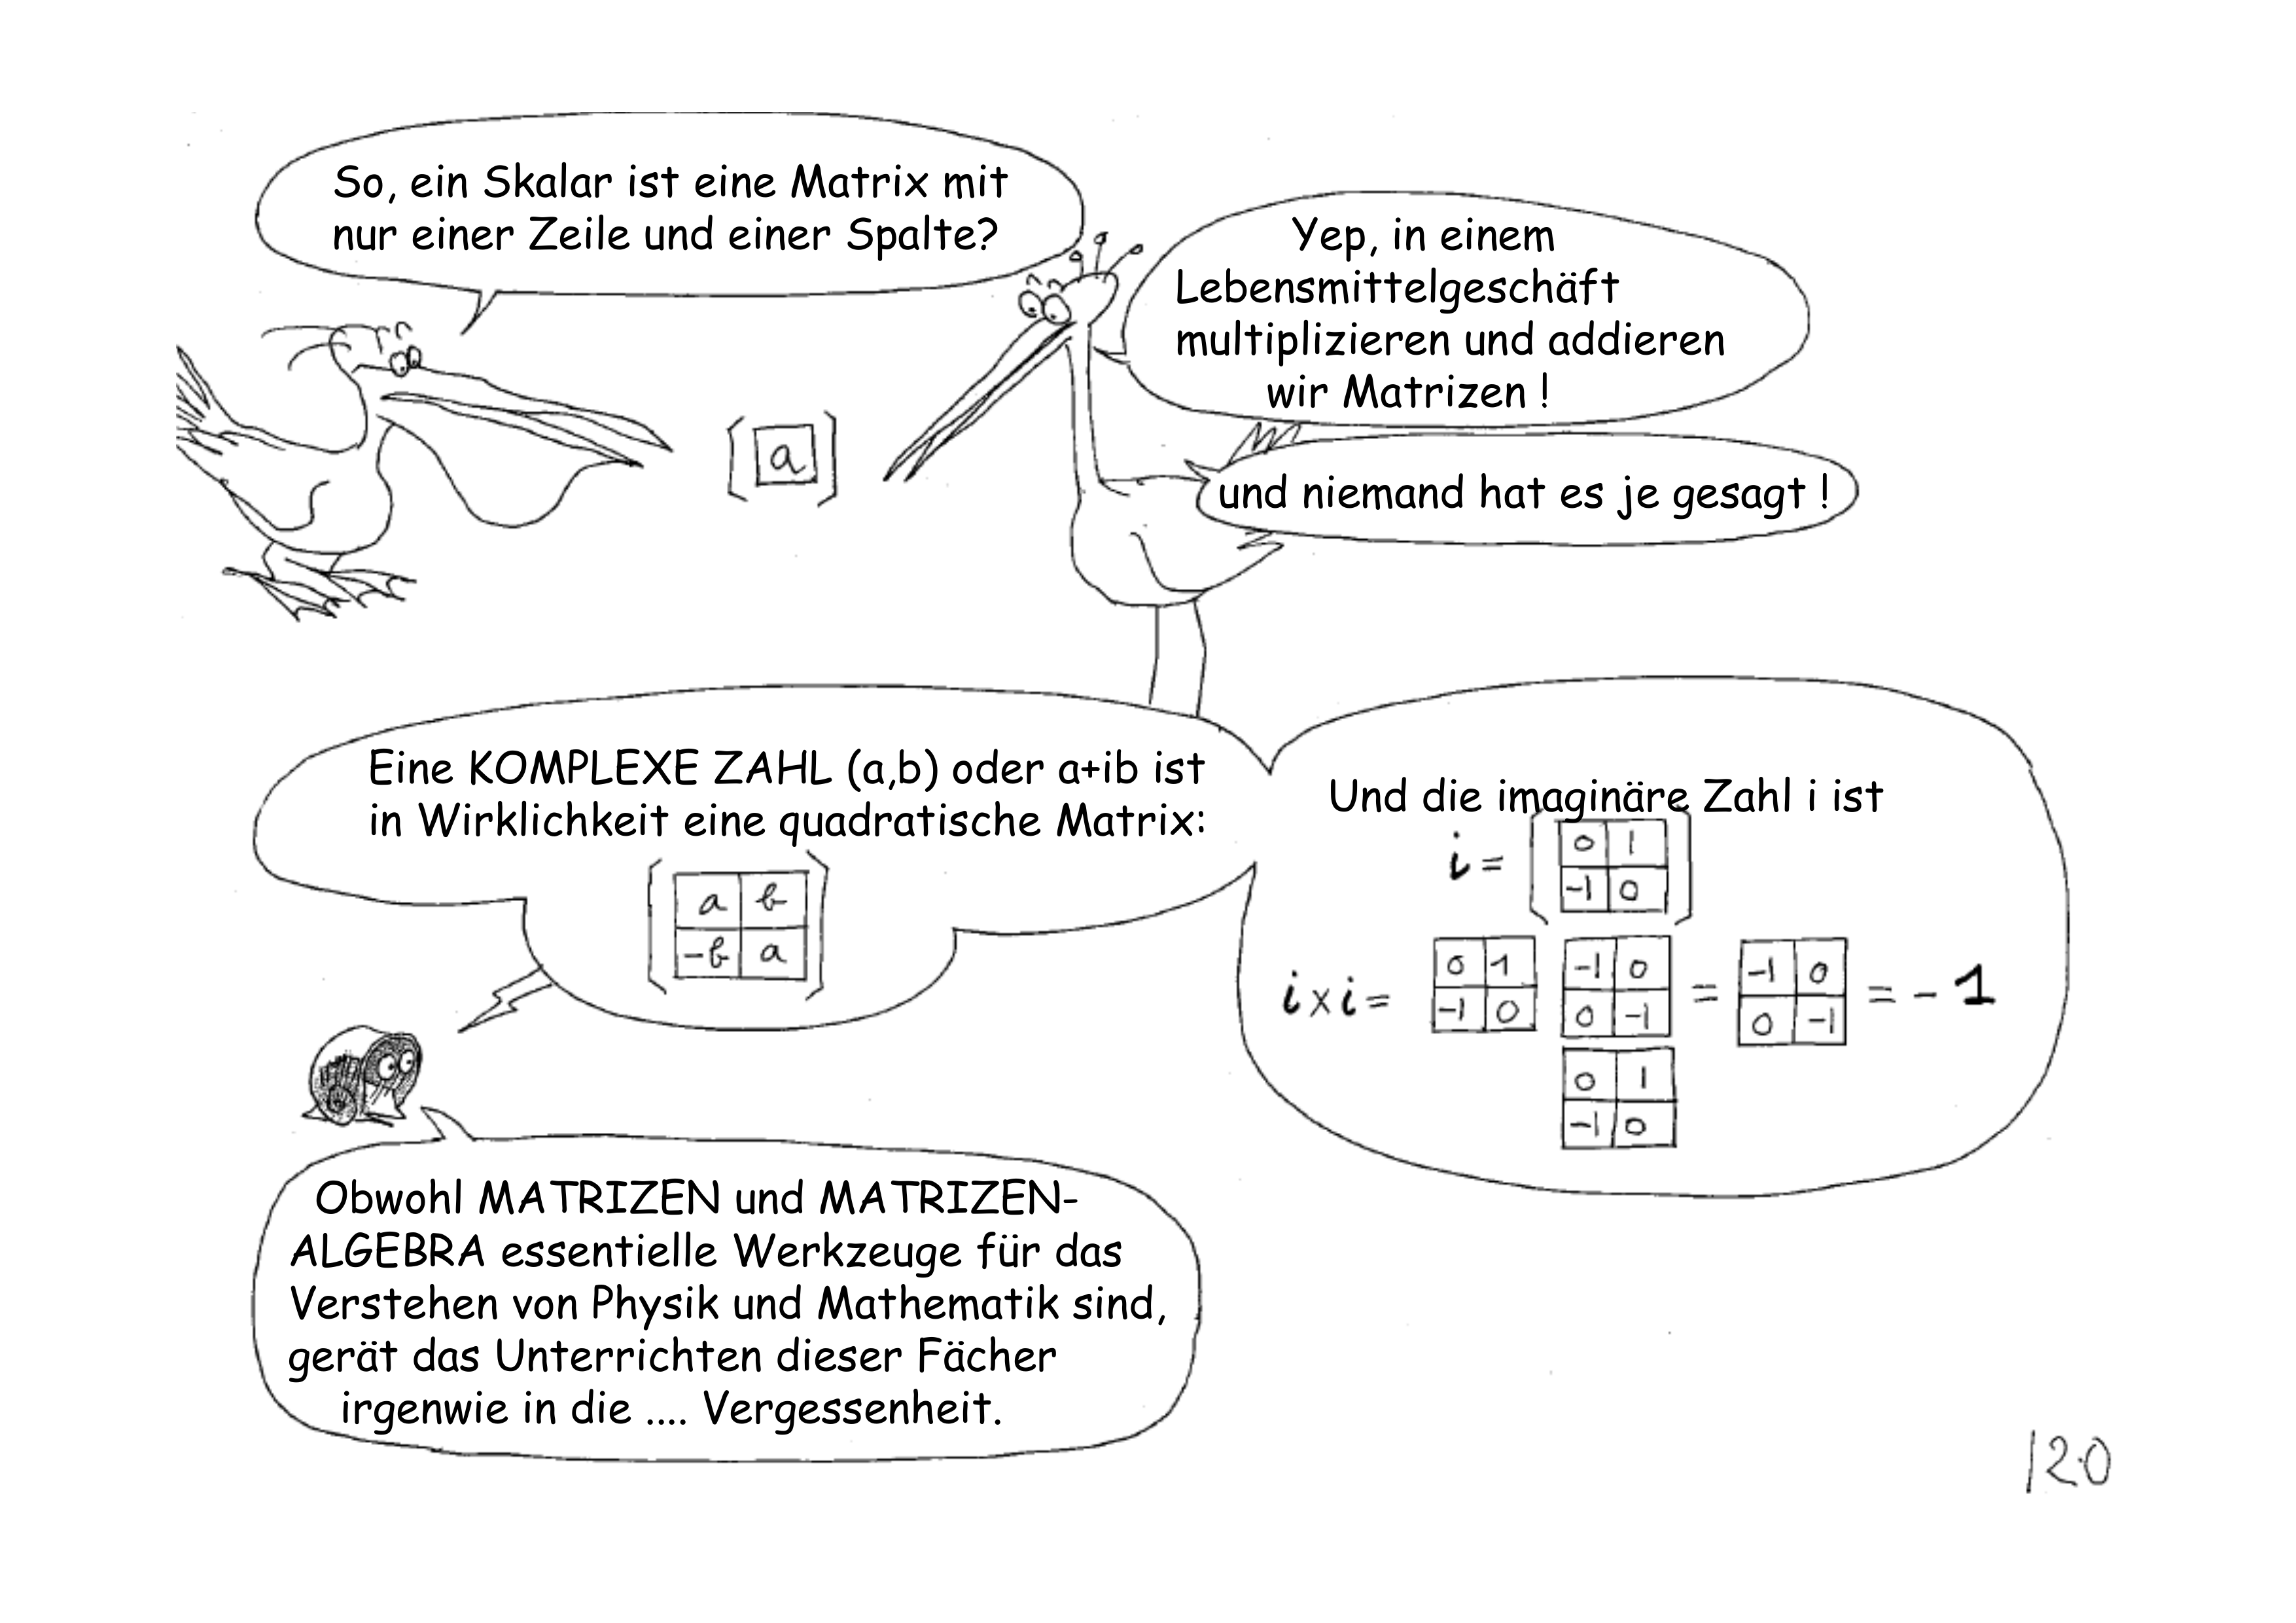 So, ein Skalar ist eine Matrix mit
nur einer Zeile und einer Spalte?
Yep, in einem
Lebensmittelgeschäft
multiplizieren und addieren
wir Matrizen !
a
und niemand hat es je gesagt !
Eine KOMPLEXE ZAHL (a,b) oder a+ib ist
in Wirklichkeit eine quadratische Matrix:
a b
-b a
Und die imaginäre Zahl i ist
i = 0 1
-1 0
i x i = 0 1 -1 0 = -1 0 = - 1
-1 0 0 -1 0 -1
0 1
-1 0
Obwohl MATRIZEN und MATRIZEN-
ALGEBRA essentielle Werkzeuge für das
Verstehen von Physik und Mathematik sind,
gerät das Unterrichten dieser Fächer
irgenwie in die .... Vergessenheit.
120